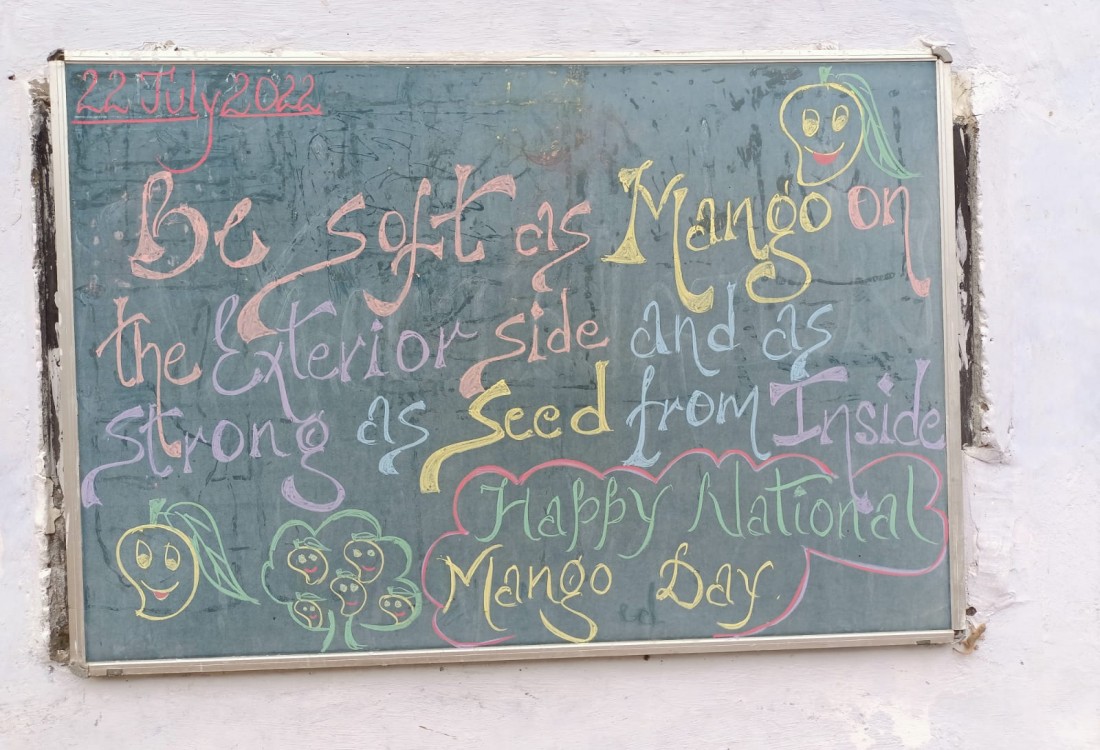 22 July 2022
Be soft as Mango on
the Exterior side and as
strong as Seed from Inside
Happy National
Mango Day.